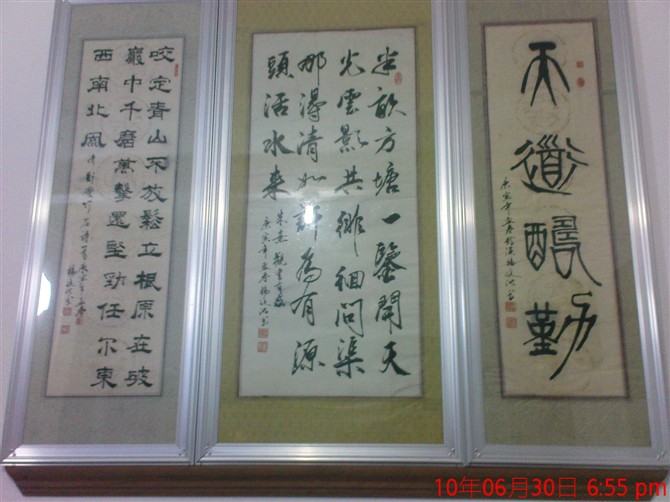 天道酬勤
咬定青山不放鬆立根原在破
巖中千磨萬擊還堅勁任尔東
西南北風
半畝方塘一鑒開天
光雲影共徘徊問渠
那得清如許為有源
頭活水来
朱熹觀書有感
10年06月30日 6:55 pm